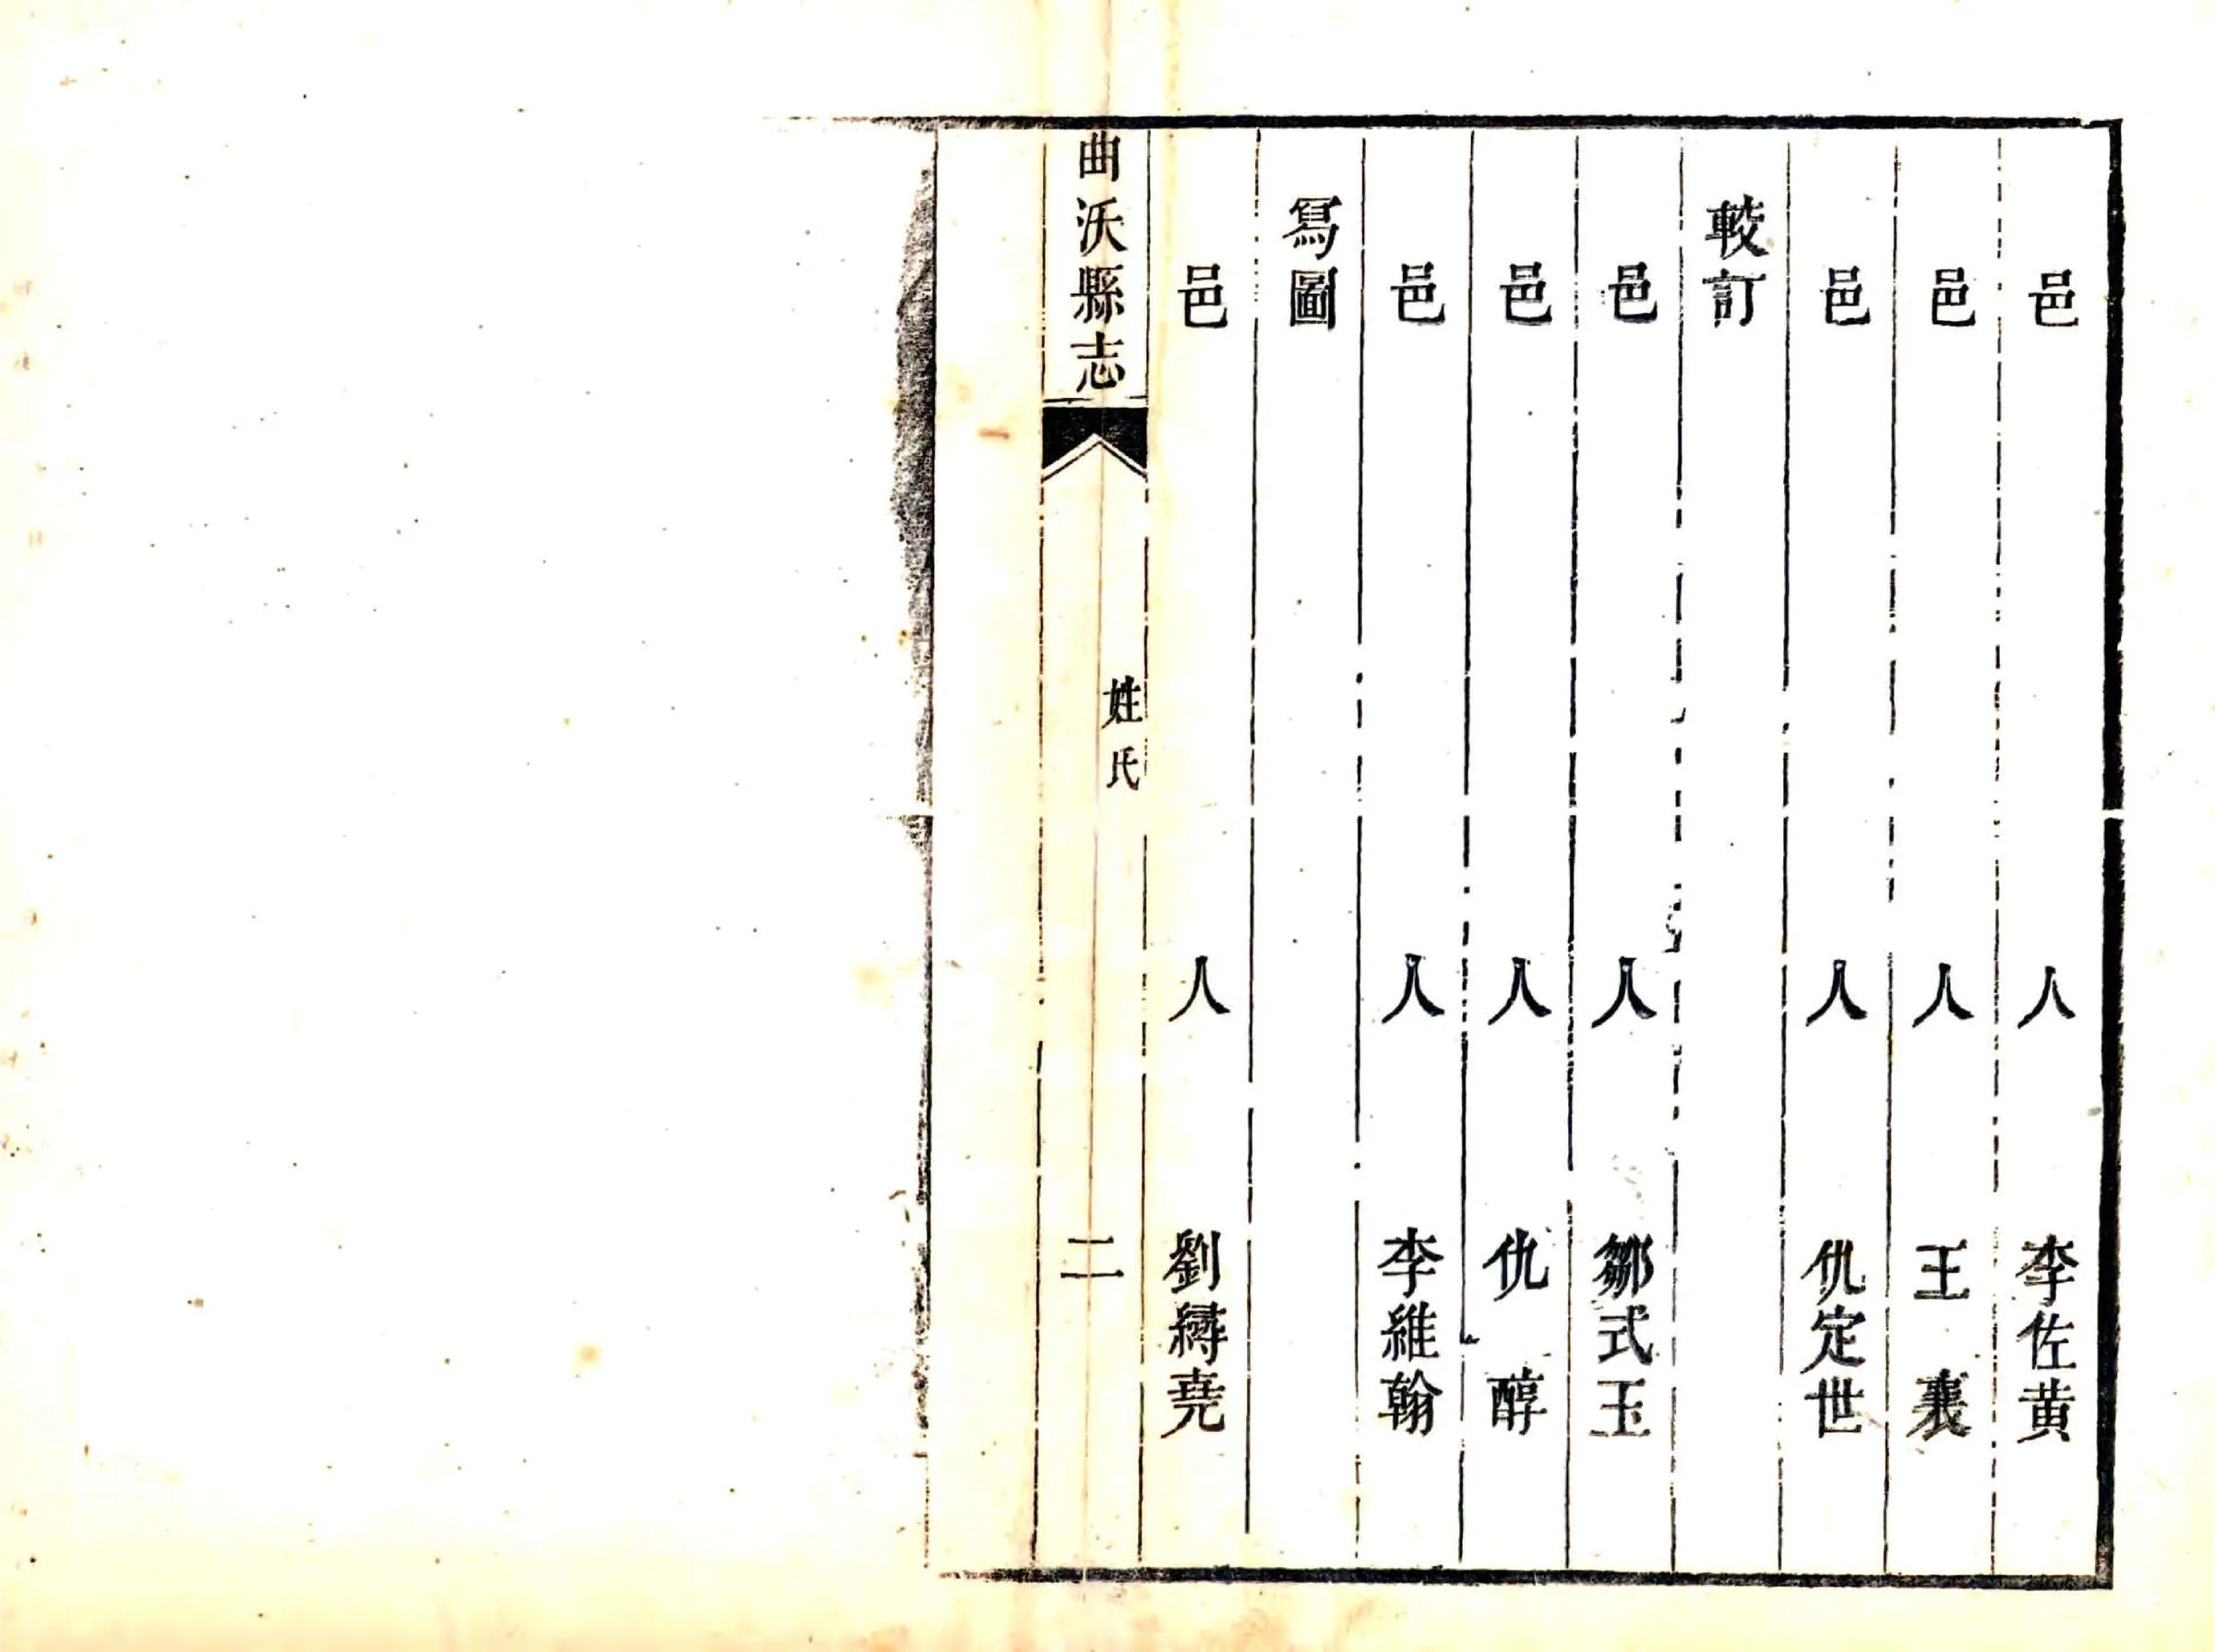 邑人李佐黄
邑人王襄
邑人仇定世
較訂
邑人鄒式玉
邑人仇醇
邑人李維翰
冩圖
邑人劉縟堯
曲沃縣志
姓氏
二